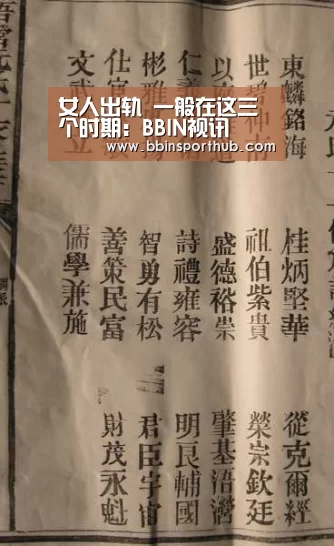 女人出轨 一般在这三
个时期：BBIN视讯
www.bbinsporthub.com
東麟銘海 桂炳堅華 從克爾經
世 祖伯紫貴 榮宗欽廷
以 盛德裕崇 肇基浯灣
仁 詩禮雍容 明良輔國
彬雅 智勇有松 君臣宇宙
仕 善策民富 財茂永魁
文武 立 儒學兼施